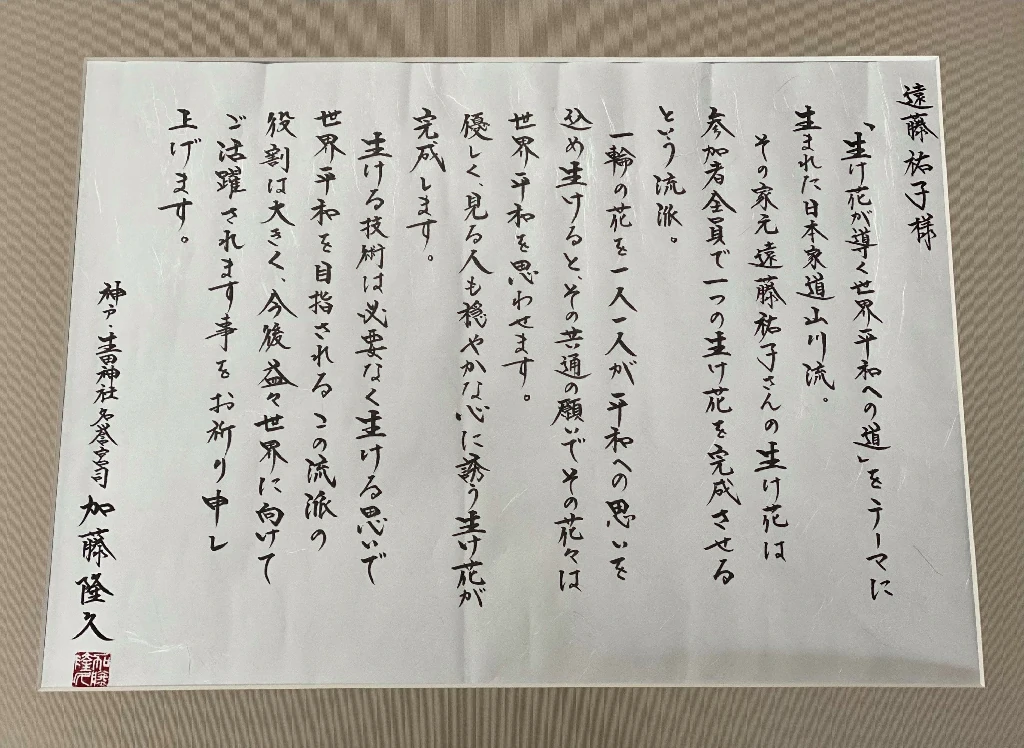 遠藤祐子様
「生け花が導く世界平和への道」をテーマに
生まれた日本家道山川流。
その家元遠藤祐子さんの生け花は
参加者全員で一つの生け花を完成させる
という流派。
一輪の花を一人一人が平和への思いを
込め生けると、その共通の願いでその花々は
世界平和を思わせます。
優しく、見る人も穏やかな心に誘う生け花が
完成します。
生ける技術は必要なく生ける思いで
世界平和を目指されるこの流派の
役割は大きく、今後益々世界に向けて
ご活躍されます事をお祈り申し
上げます。
神戸・生田神社名誉宮司 加藤隆久
加藤隆久